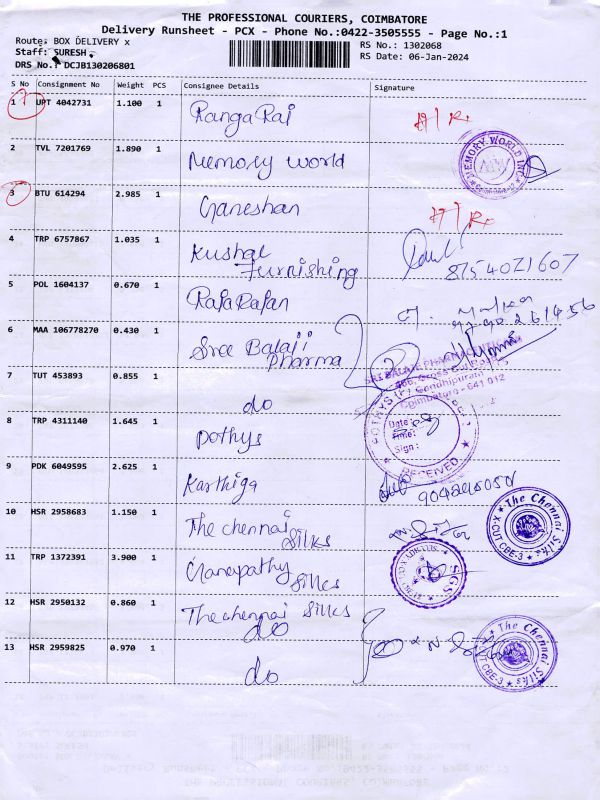 THE PROFESSIONAL COURIERS, COIMBATORE
Delivery Runsheet - PCX - Phone No.:0422-3505555 - Page No.:1
Route: BOX DELIVERY x
RS No.: 1302068
Staff: SURESH
RS Date: 06-Jan-2024
DRS No.: DCJB130206801
S No Consignment No Weight PCS Consignee Details Signature
1 UPT 4042731 1.100 1 RangaRaj
2 TVL 7201769 1.890 1 Memory world
MEMORY WORLD INC
3 BTU 614294 2.985 1 Ganeshan
4 TRP 6757867 1.035 1 Kushal Furnishing
8754021607
5 POL 1604137 0.670 1 RajaRajan
6 MAA 106778270 0.430 1 Sree Balaji Pharma
SRI BALAJI PHARMA
Cross Cut Road
Gandhipuram
Coimbatore - 641 012
7 TUT 453893 0.855 1 do
8 TRP 4311140 1.645 1 Pothys
POTHYS (P)
Date:
Time:
Sign:
RECEIVED
9 PDK 6049595 2.625 1 Karthiga
10 HSR 2958683 1.150 1 The chennai Silks
The Chennai Silks
X-CUT CBE-3
11 TRP 1372391 3.900 1 Ganapathy Silks
SGS
12 HSR 2950132 0.860 1 The chennai Silks
do
13 HSR 2959825 0.970 1 do
The Chennai Silks
X-CUT CBE-3